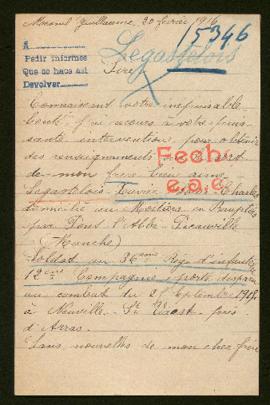 Mesnil Guillaume, 20 février 1916
15346
A
Pedir informes
Que se haga así
Devolver
Legastelois
Sire,
Connaissant votre inépuisable
bonté j'ai recours à votre puis-
sante intervention pour obtenir
des renseignements sur le sort
de mon frère bien aimé
Fecho
Legastelois Louis Charles
domicilié au Moitiers en Bauptois
par Pont l'Abbé Picauville
(Manche)
Soldat au 36ème Rég d'infanterie
12ème Compagnie, porté disparu
au combat du 25 Septembre 1915
à Neuville St Vaast près
d'Arras.
Sans nouvelles de mon cher frère